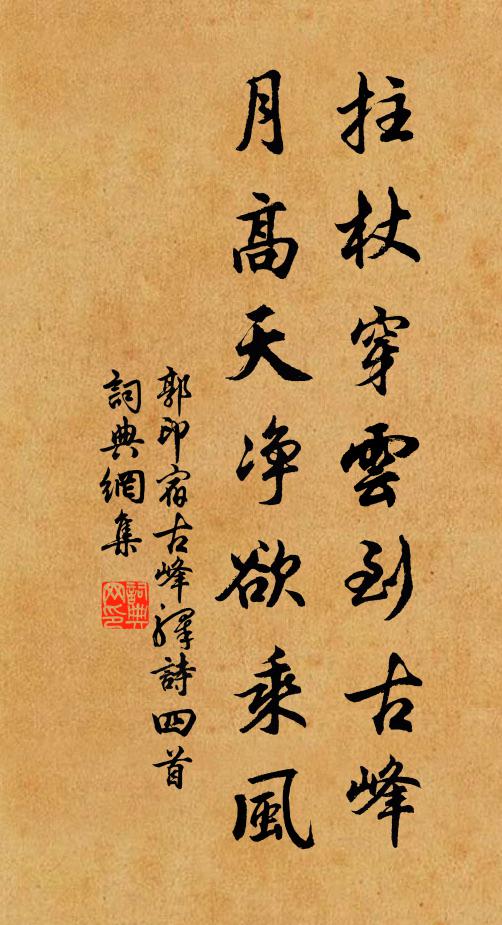 拄杖穿雲到古峰
月高天淨欲乘風
郭印宿古峰驛詩四首
詞典網集
詞典网印